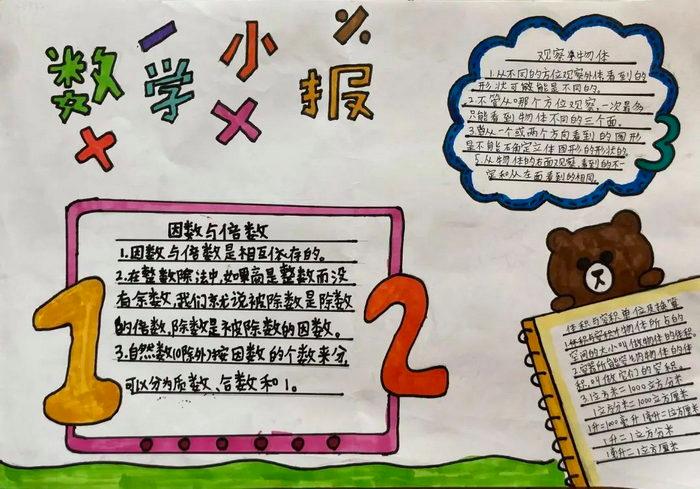 数学小报
观察物体
1.从不同的方位观察物体看到的
形状可能是不同的。
2.不管从哪个方位观察,一次最多
只能看到物体不同的三个面。
从一个或两个方向看到的图形
是不能确定立体图形的形状的
5.从物体的右面观察,看到的不一
定和从左面看到的相同。
因数与倍数
1.因数与倍数是相互依存的。
2.在整数除法中,如果商是整数而没
有余数,我们就说被除数是除数
的倍数,除数是被除数的因数。
3.自然数(0除外)按因数的个数来分
可以分为质数、合数和1。
1
2
3
体积与容积单位及换算
1.体积与容积:物体所占的
空间的大小叫做物体的体积。
2.容器所能容纳物体的体
积,叫做它们的容积。
3.1立方米=1000立方分米
1立方分米=1000立方厘米
1升=1000毫升 1毫升=1立方厘米
1升=1立方分米
1毫升=1立方厘米